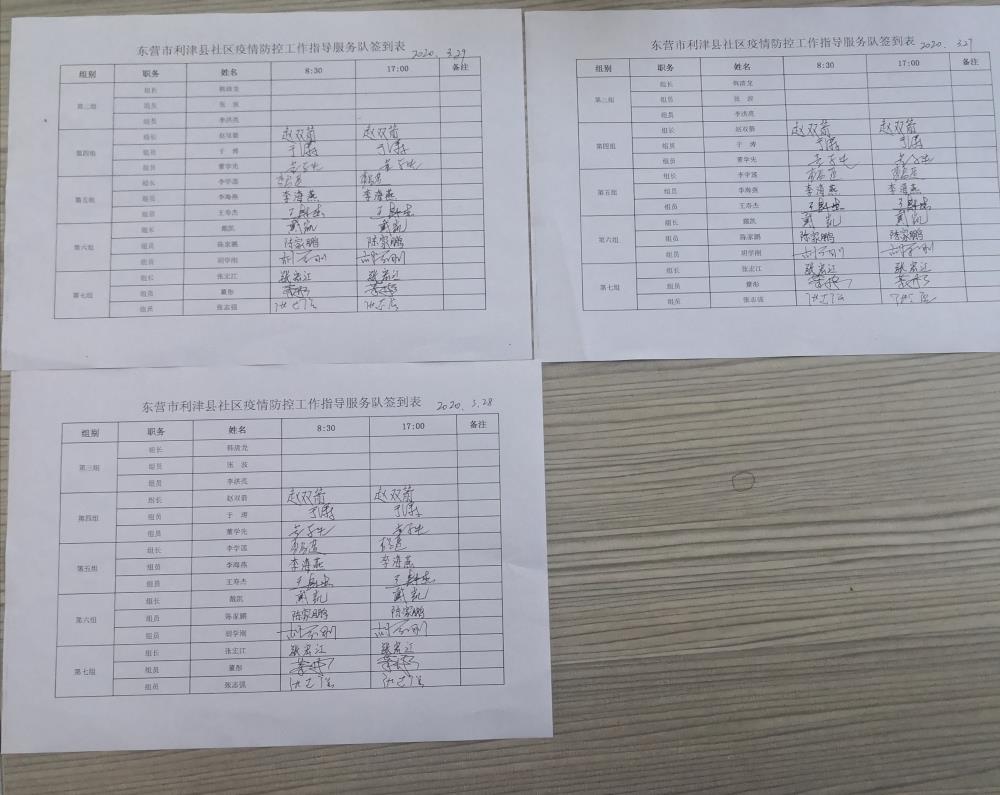 东营市利津县社区疫情防控工作指导服务队签到表 2020.3.29
组别 职务 姓名 8:30 17:00 备注
组长 韩清龙
第三组 组员 张 波
组员 李洪亮
组长 赵双箭 赵双箭 赵双箭
第四组 组员 于 涛 于涛 于涛
组员 董学先
组长 李学莲
第五组 组员 李海燕 李海燕 李海燕
组员 王寿杰 王寿杰 王寿杰
组长 戴凯 戴凯 戴凯
第六组 组员 陈家鹏 陈家鹏 陈家鹏
组员 胡学刚 胡学刚 胡学刚
组长 张宏江 张宏江 张宏江
第七组 组员 董彤 董彤 董彤
组员 张志强 张志强 张志强
东营市利津县社区疫情防控工作指导服务队签到表 2020.3.27
组别 职务 姓名 8:30 17:00 备注
组长 韩清龙
第三组 组员 张 波
组员 李洪亮
组长 赵双箭 赵双箭 赵双箭
第四组 组员 于 涛 于涛 于涛
组员 董学先
组长 李学莲
第五组 组员 李海燕 李海燕 李海燕
组员 王寿杰 王寿杰 王寿杰
组长 戴凯 戴凯 戴凯
第六组 组员 陈家鹏 陈家鹏 陈家鹏
组员 胡学刚 胡学刚 胡学刚
组长 张宏江 张宏江 张宏江
第七组 组员 董彤 董彤 董彤
组员 张志强 张志强 张志强
东营市利津县社区疫情防控工作指导服务队签到表 2020.3.28
组别 职务 姓名 8:30 17:00 备注
组长 韩清龙
第三组 组员 张 波
组员 李洪亮
组长 赵双箭 赵双箭 赵双箭
第四组 组员 于 涛 于涛 于涛
组员 董学先
组长 李学莲
第五组 组员 李海燕 李海燕 李海燕
组员 王寿杰 王寿杰 王寿杰
组长 戴凯 戴凯 戴凯
第六组 组员 陈家鹏 陈家鹏 陈家鹏
组员 胡学刚 胡学刚 胡学刚
组长 张宏江 张宏江 张宏江
第七组 组员 董彤 董彤 董彤
组员 张志强 张志强 张志强